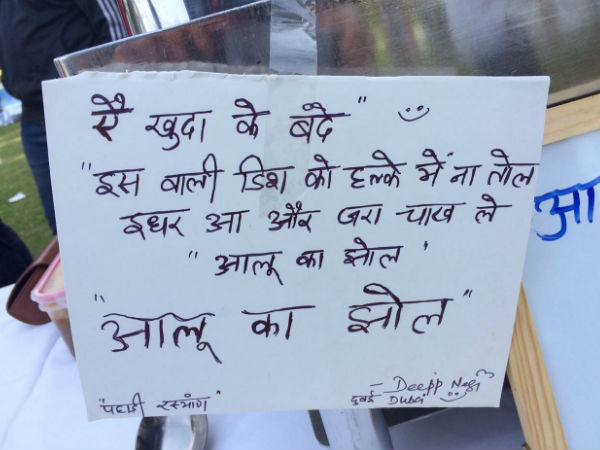 ऐ खुदा के बंदे"
"इस वाली डिश को हल्के में ना तोल
इधर आ और जरा चाख ले
"आलू का झोल'
"आलू का झोल"
"पहाड़ी रस्याण"
- Deepp Negi
दुबई Dubai
आ